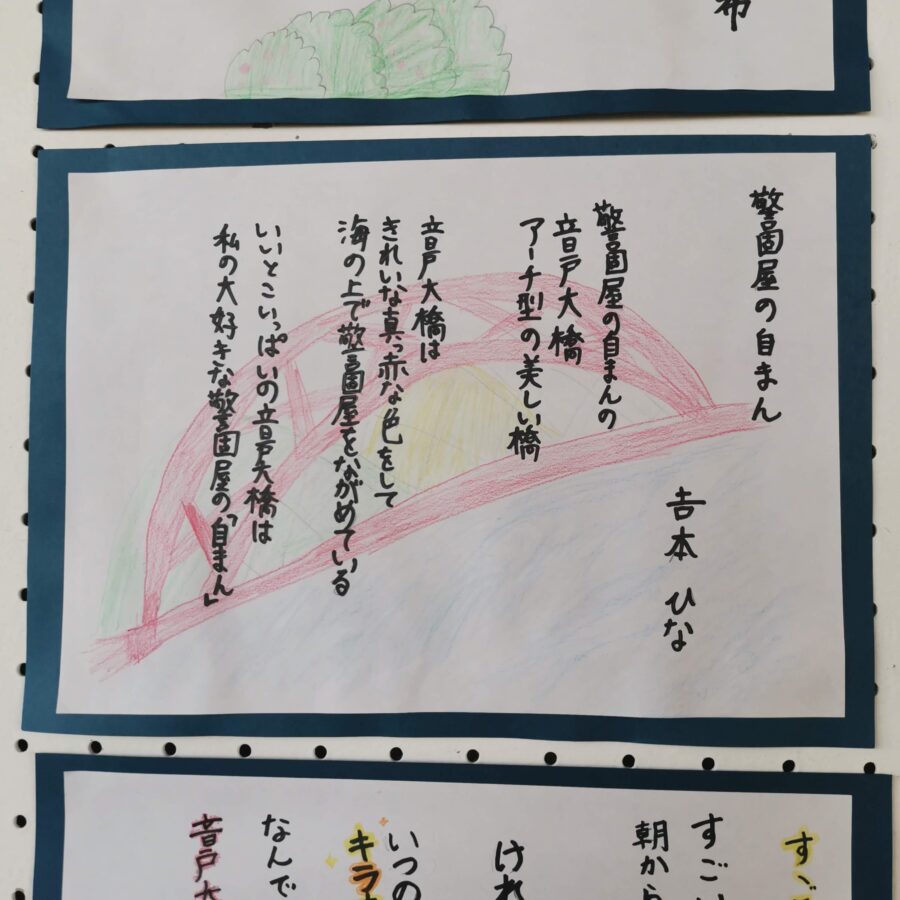 布
警固屋の自まん
吉本 ひな
警固屋の自まんの
音戸大橋
アーチ型の美しい橋
音戸大橋は
きれいな真っ赤な色をして
海の上で警固屋をながめている
いいとこいっぱいの音戸大橋は
私の大好きな警固屋の「自まん」
すご
すごい
朝から
けれ
いつの
キラ
なんで
音戸大